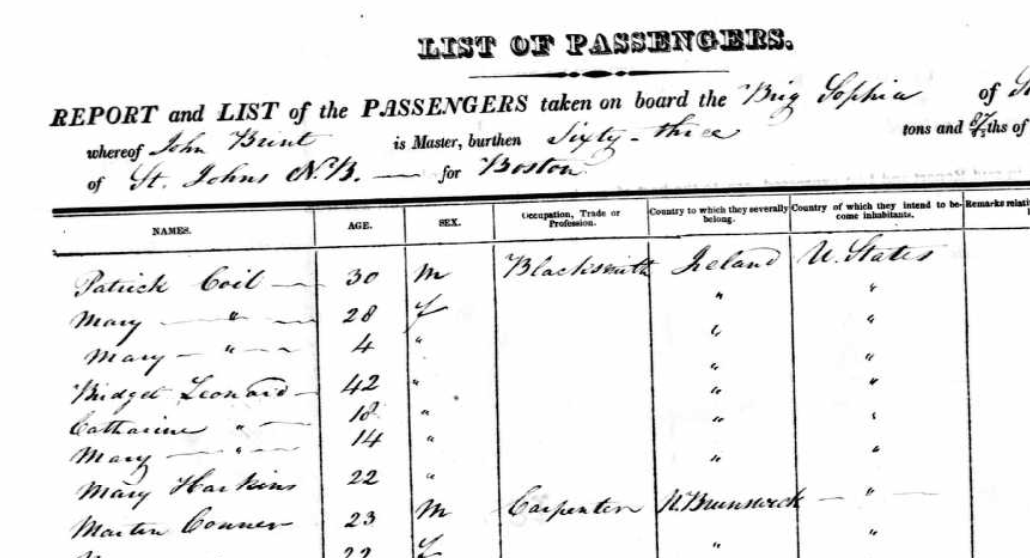 LIST OF PASSENGERS.
REPORT and LIST of the PASSENGERS taken on board the Brig Sophia of
whereof John Brint is Master, burthen Sixty-three tons and ths of
of St. Johns N.B. — for Boston
NAMES. AGE. SEX. Occupation, Trade or Profession. Country to which they severally belong. Country of which they intend to become inhabitants. Remarks relati
Patrick Coil — 30 M Blacksmith Ireland U. States
Mary — " — 28 f " "
Mary — " — 4 " " "
Bridget Leonard — 42 " " "
Catharine " — 18 " " "
Mary — " — 14 " " "
Mary Harkins 22 " " "
Martin Conner 23 M Carpenter N. Brunswick — " —
22 f " "